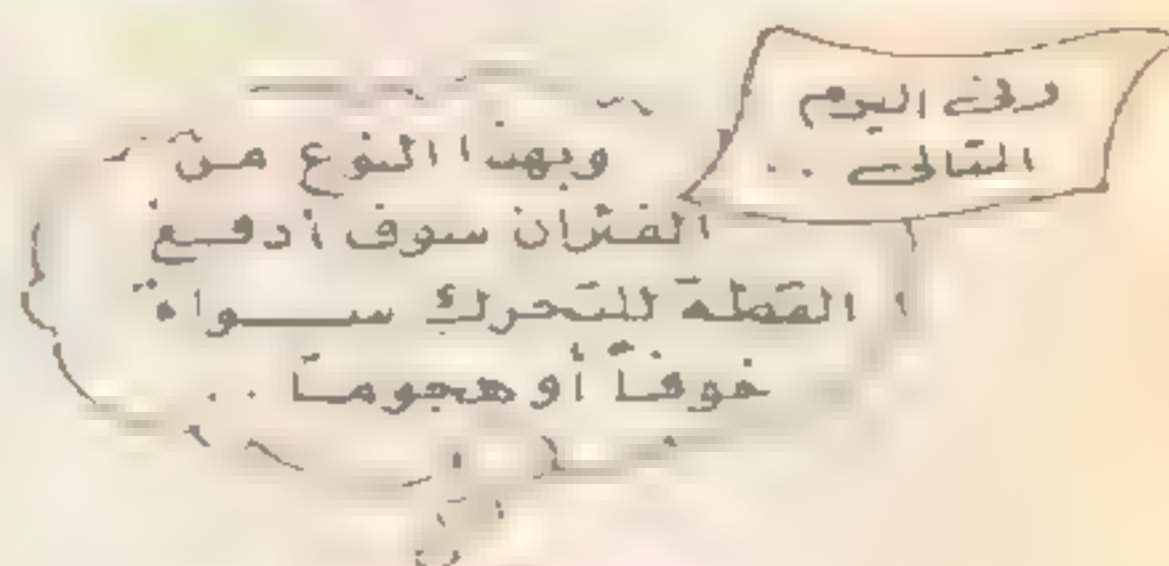 وفى اليوم
التالى ..
وبهذا النوع من
الفئران سوف أدفع
القطة للتحرك سواء
خوفاً أو هجوماً ..